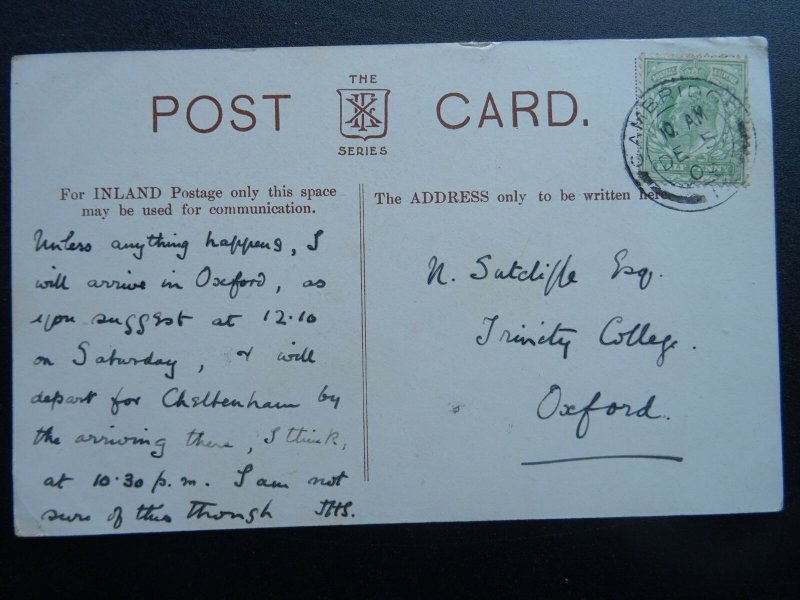 THE
POST CARD.
SERIES
CAMBRIDGE
10. AM
DE
For INLAND Postage only this space
may be used for communication.
The ADDRESS only to be written here.
Unless anything happens, I
will arrive in Oxford, as
you suggest at 12.10
on Saturday, & will
depart for Cheltenham by
the arriving there, I think,
at 10.30 p.m. I am not
sure of this though JHS.
N. Sutcliffe Esq.
Trinity College.
Oxford.